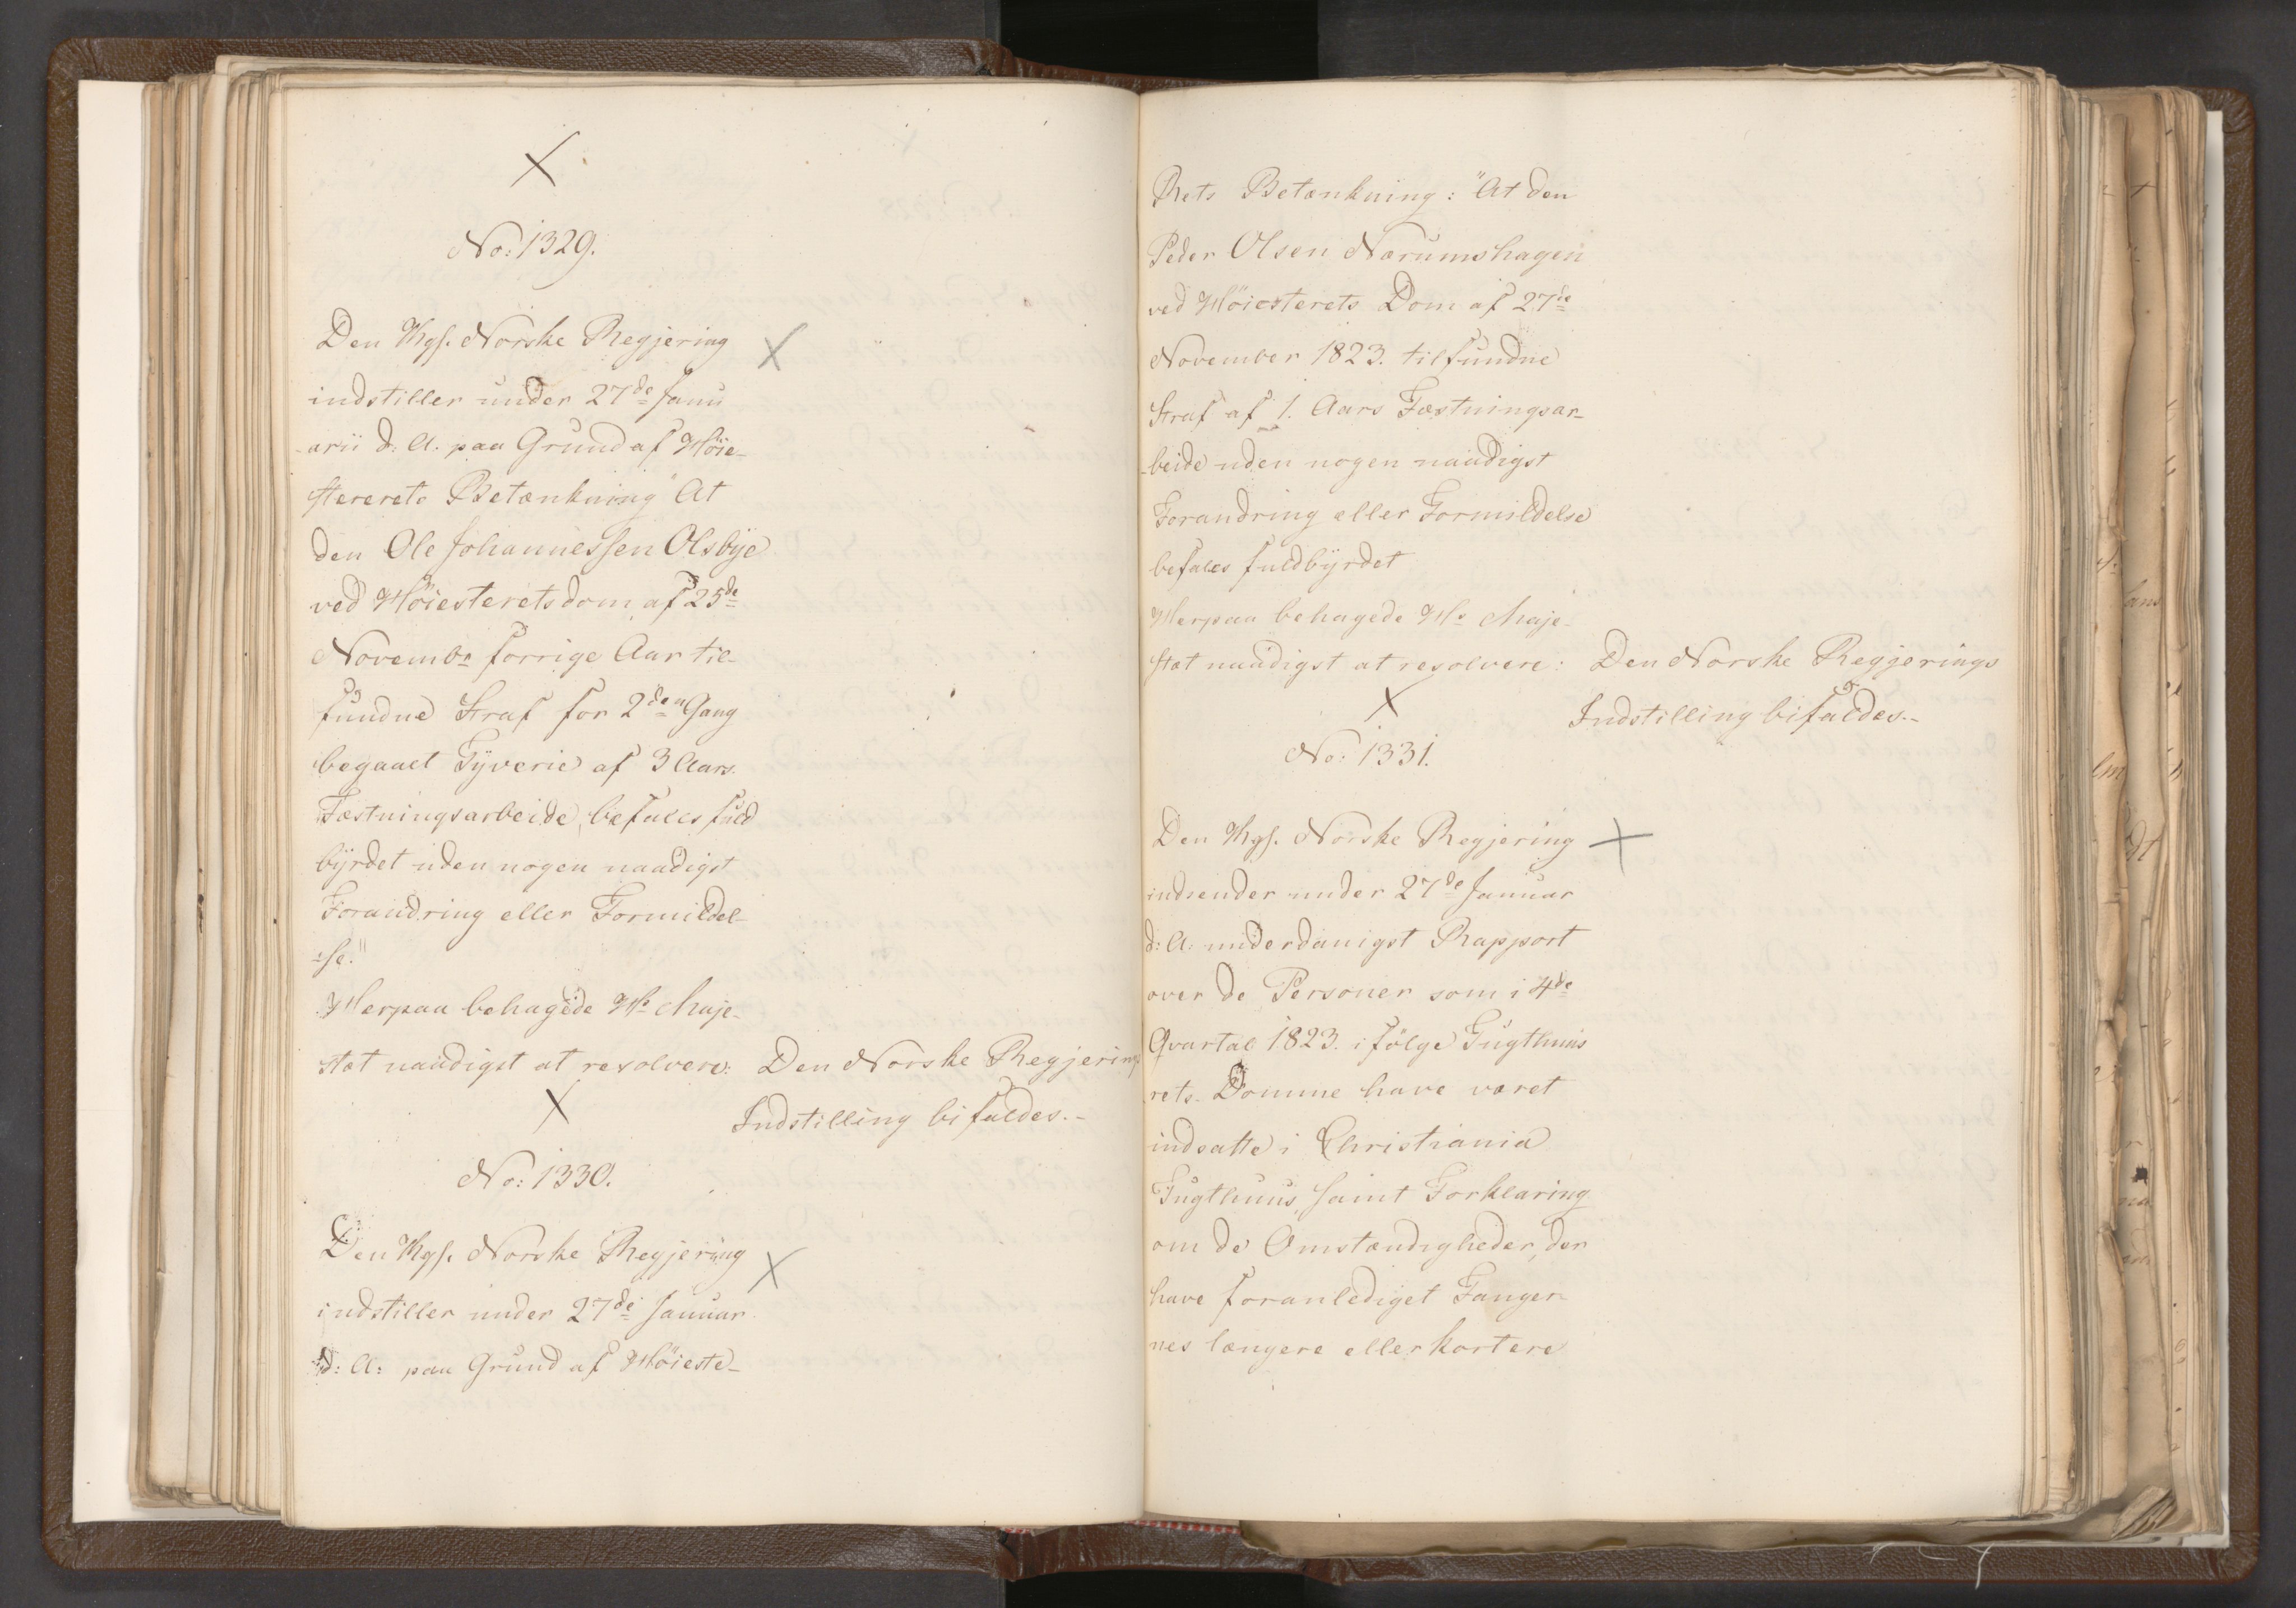 No: 1329.
Den Kgs. Norske Regjering
indstiller under 27de Janu
arii d: A. paa Grund af Höie-
stererets Betænkning "At
den Ole Johannessen Olsbye
ved Höiesteretsdom af 25de
Novembr forrige Aar til-
fundne Straf for 2den Gang
begaaet Tyverie af 3 Aars
Fæstningsarbeide, befales fuld
byrdet uden nogen naadigst
Forandring eller Formildel-
-se."
Herpaa behagede Hs Maje-
stæt naadigst at resolvere: Den Norske Regjerings
Indstilling bifaldes.-
No: 1330.
Den Kgs. Norske Regjering
indstiller under 27de Januar
d: A: paa Grund af Höieste-
Rets Betænkning: "At den
Peder Olsen Nærumshagen
ved Höiesterets Dom af 27de
November 1823. tilfundne
Straf af 1. Aars Fæstningsar-
beide uden nogen naadigst
Forandring eller Formildelse
befales fuldbyrdet
Herpaa behagede Hs Maje-
stæt naadigst at resolvere: Den Norske Regjerings
Indstilling bifaldes.-
No: 1331.
Den Kgs. Norske Regjering
indsender under 27de Januar
d: A: underdanigst Rapport
over de Personer som i 4de
Qvartal 1823. i fölge Tugthuus
rets- Domme have været
indsatte i Christiania
Tugthuus, samt Forklaring
om de Omstændigheder, der
have foranlediget Fanger-
nes længere eller kortere